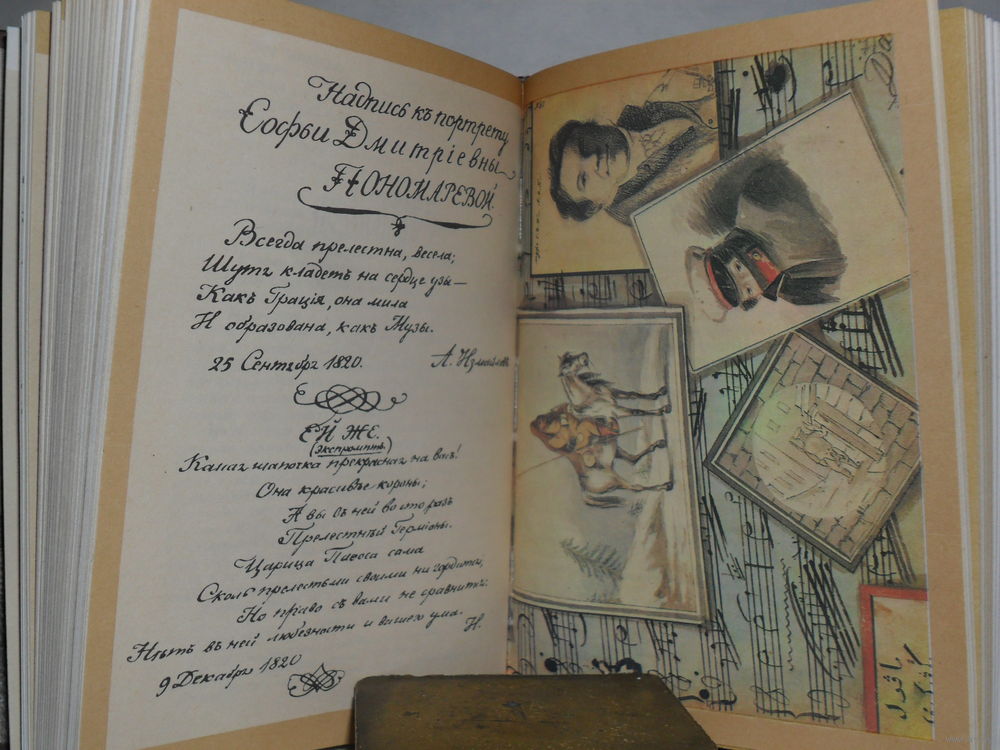 Надпись къ портрету
Софьи Дмитріевны
Пономаревой.
Всегда прелестна, весела;
Шутя кладетъ на сердце узы —
Какъ Грація, она мила
И образована, какъ Музы.
25 Сентября 1820. А. Измайловъ
ЕЙ ЖЕ.
(Экспромптъ)
Какая шапочка прекрасная на васъ!
Она красивѣе короны;
А вы въ ней во сто разъ
Прелестнѣй Герміоны.
Царица Пафоса сама
Сколь прелестьми своими ни гордится,
Но право съ вами не сравнится:
Нѣтъ въ ней любезности и вашего ума.
И.
9 Декабря 1820